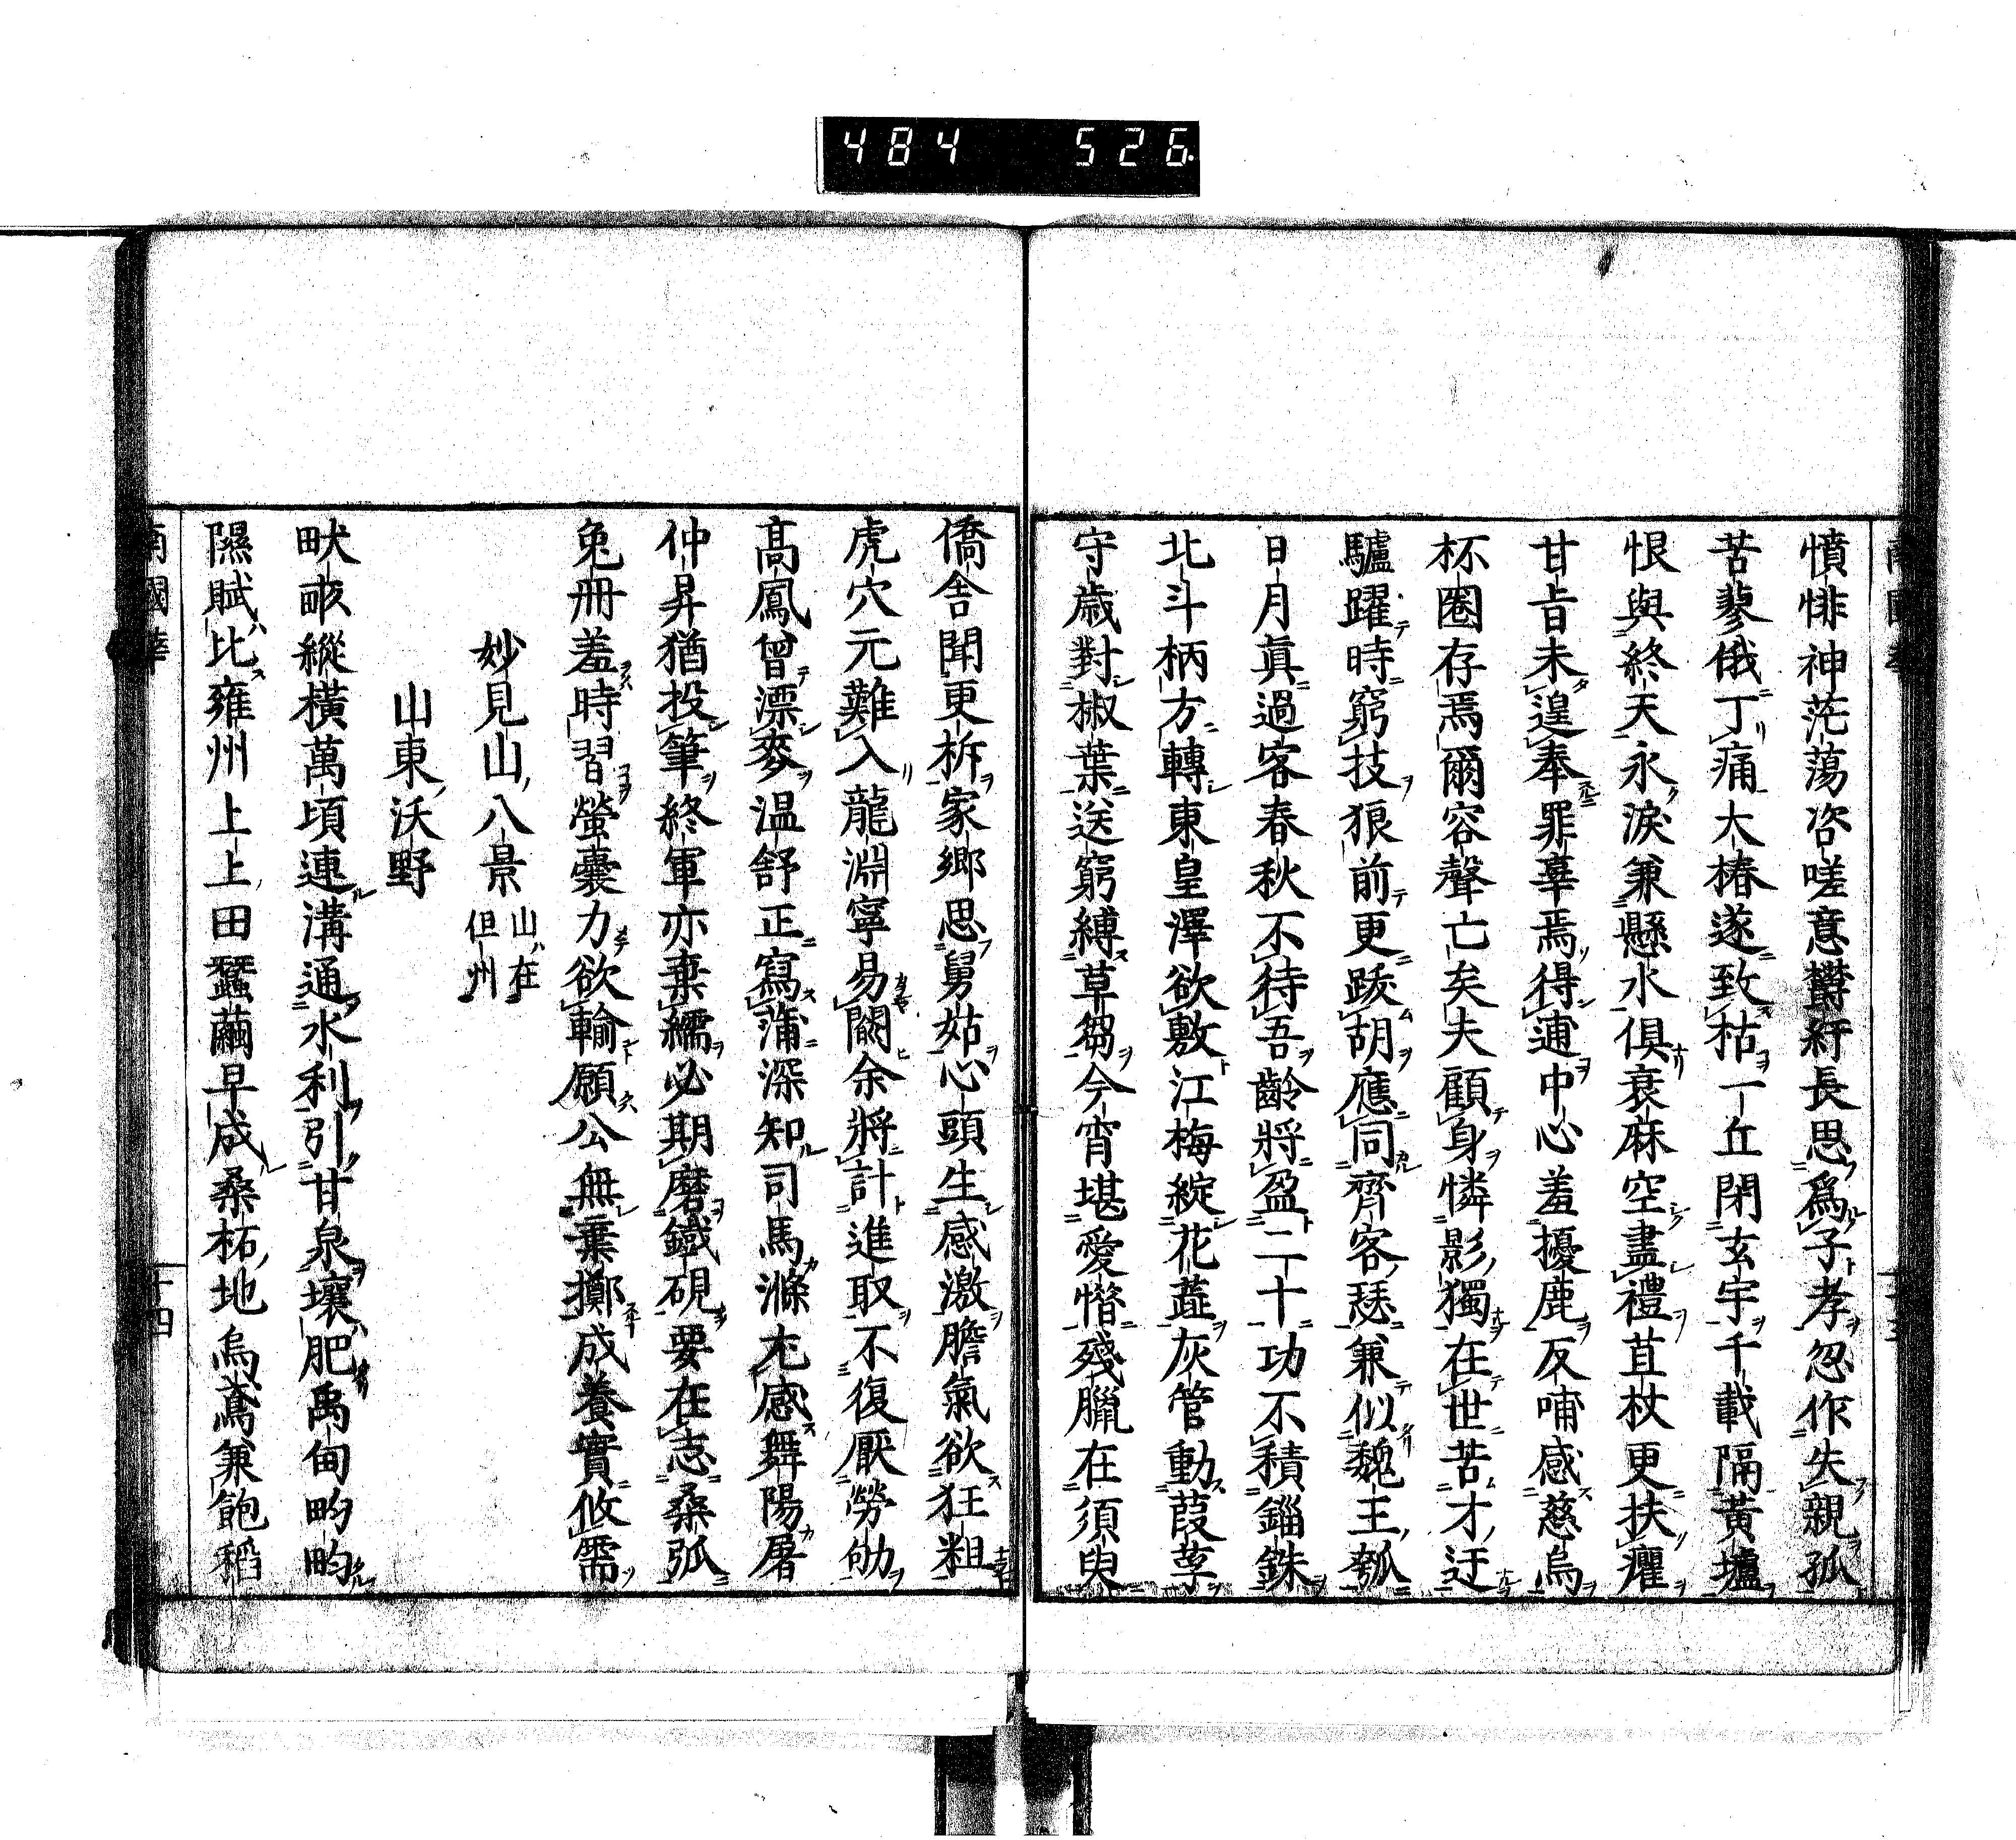 484 526
憤悱神茫蕩咨嗟意欝紆長思爲子孝忽作失親孤
苦蓼俄丁痛大椿遂致枯一丘閉玄宇千載隔黃壚
恨與終天永淚兼懸水俱衰麻空盡禮苴杖更扶癯
甘旨未遑奉罪辜焉得逋中心羞擾鹿反哺感慈烏
杯圈存焉爾容聲亡矣夫顧身憐影獨在世苦才迂
驢躍時窮技狼前更跋胡應同齊客瑟兼似魏王瓠
日月眞過客春秋不待吾齡將盈二十功不積錙銖
北斗柄方轉東皇澤欲敷江梅綻花蘂灰管動葭莩
守歳對椒葉送窮縛草芻今宵堪愛惜殘臘在須臾
僑舍聞更柝家郷思舅姑心頭生感激膽氣欲狂粗
虎穴元難入龍淵寧易闞余將計進取不復厭勞劬
高鳳曾漂麥温舒正寫蒲深知司馬滌尤感舞陽屠
仲昇猶投筆終軍亦棄繻必期磨鐵硯要在志桑弧
兔冊羞時習螢囊力欲輸願公無棄擲成養實攸需
妙見山八景 山在但州
山東沃野
畎畝縱橫萬頃連溝通水利引甘泉壤肥禹甸畇畇
隰賦比雍州上上田蠶繭早成桑柘地烏鳶兼飽稻
南國華 十四